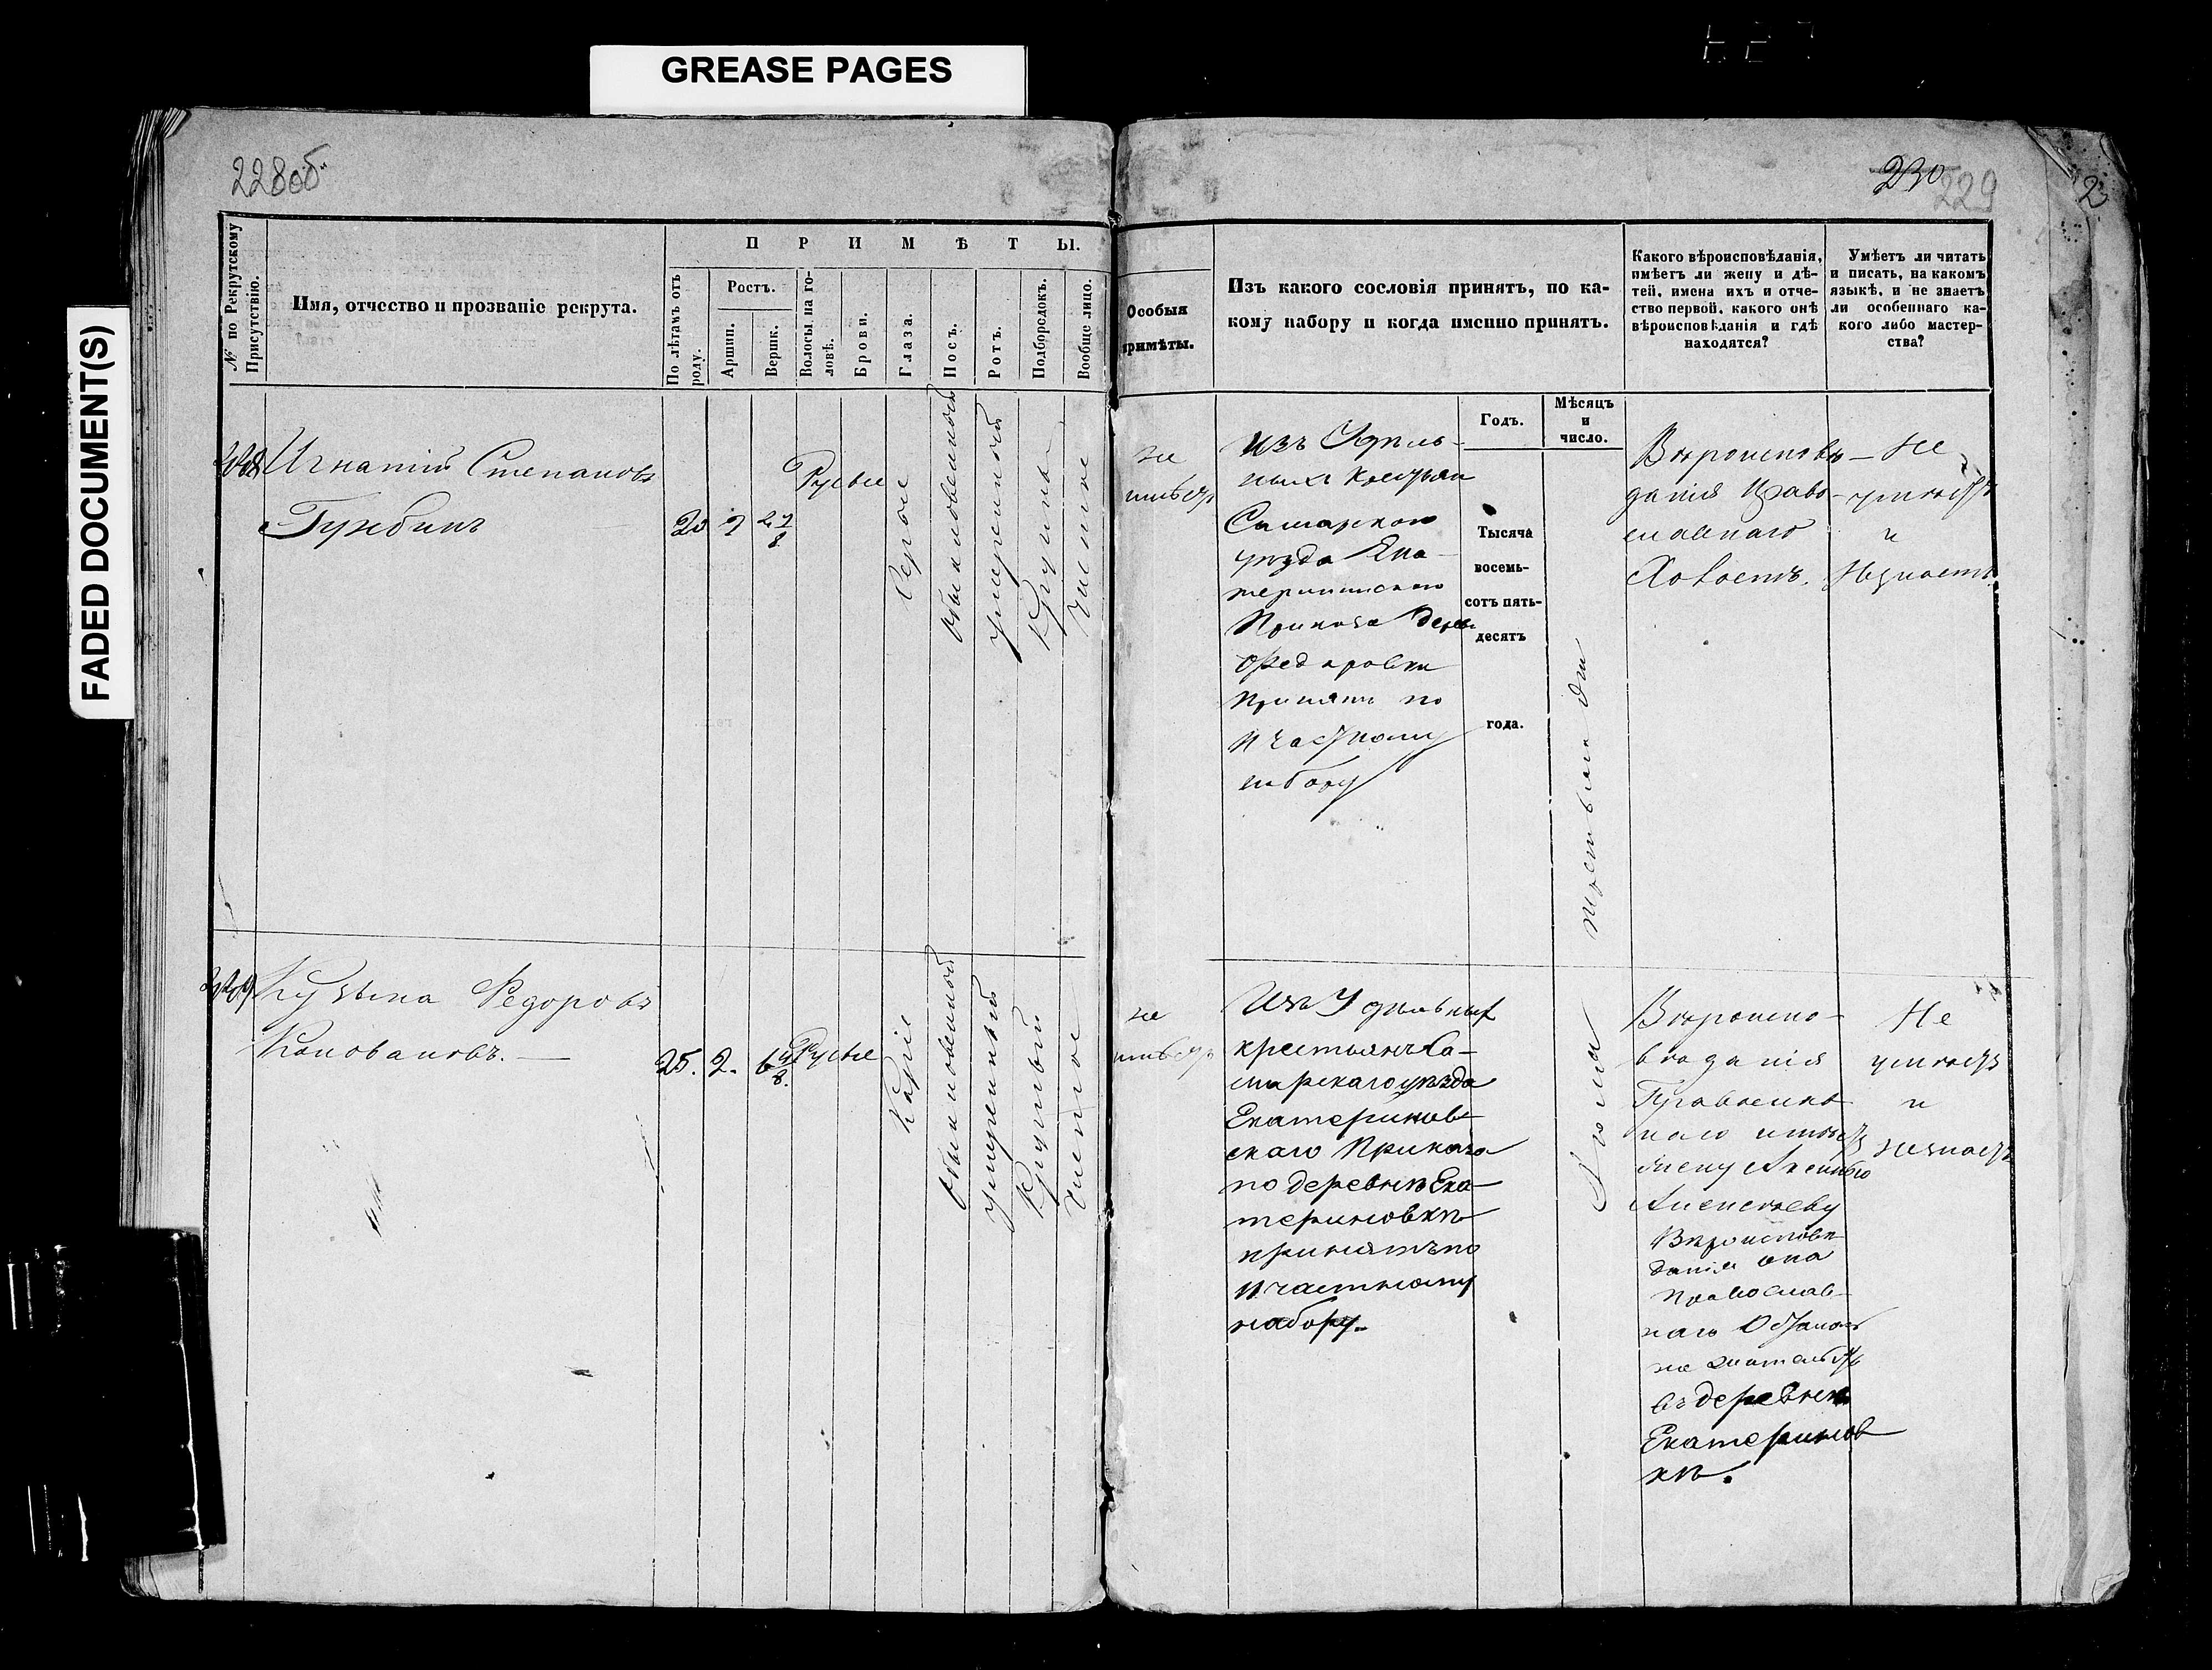 GREASE PAGES
FADED DOCUMENT(S)
228об
230
229
2
№ по Рекрутскому Присутствію.
Имя, отчество и прозваніе рекрута.
ПРИМѢТЫ.
По лѣтамъ отъ роду.
Ростъ.
Аршин.
Вершк.
Волосы на го-
ловѣ.
Брови.
Глаза.
Носъ.
Ротъ.
Подбородокъ.
Вообще лицо.
Особыя
примѣты.
Изъ какого сословія принятъ, по ка-
кому набору и когда именно принятъ.
Годъ.
Мѣсяцъ
и
число.
Какого вѣроисповѣданія,
имѣетъ ли жену и дѣ-
тей, имена ихъ и отче-
ство первой, какого онѣ
вѣроисповѣданія и гдѣ
находятся?
Умѣетъ ли читать
и писать, на какомъ
языкѣ, и не знаетъ
ли особеннаго ка-
кого либо мастер-
ства?
Игнатій Степановъ
20 2 2 7/8
Русые
Серые
Обыкновенной
Умеренной
Чистое
не
имѣетъ
изъ Удѣль-
ныхъ Крестьян
Самарскаго
уѣзда Ека-
терининскаго
Приказа дерев.
Федоровки
Принятъ по
и частному
набору
Тысяча
восемь-
сотъ пять-
десятъ
года.
Третьяго дни
Вѣроисповѣ-
данія Право-
славнаго
Холостъ.
Не
умѣетъ
и
Незнаетъ
Кузьма Федоровъ
Коноваловъ.
25. 2. 6 4/8.
Русые
Каріе
Обыкновенный
умеренный
Круглый
Чистое
не
имѣетъ
Изъ Удѣльных
крестьянъ Са-
марскаго уѣзда
Екатеринов-
скаго Приказа
по деревнѣ Ека-
териновкѣ
принятъ по
и частному
набору.
Вѣроиспо-
вѣданія
Православ-
наго имѣетъ
жену
Алексѣеву
Вѣроисповѣ-
данія она
Православ-
наго
на жительст
въ деревнѣ
Екатеринов
кѣ.
Не
умѣетъ
и
незнаетъ